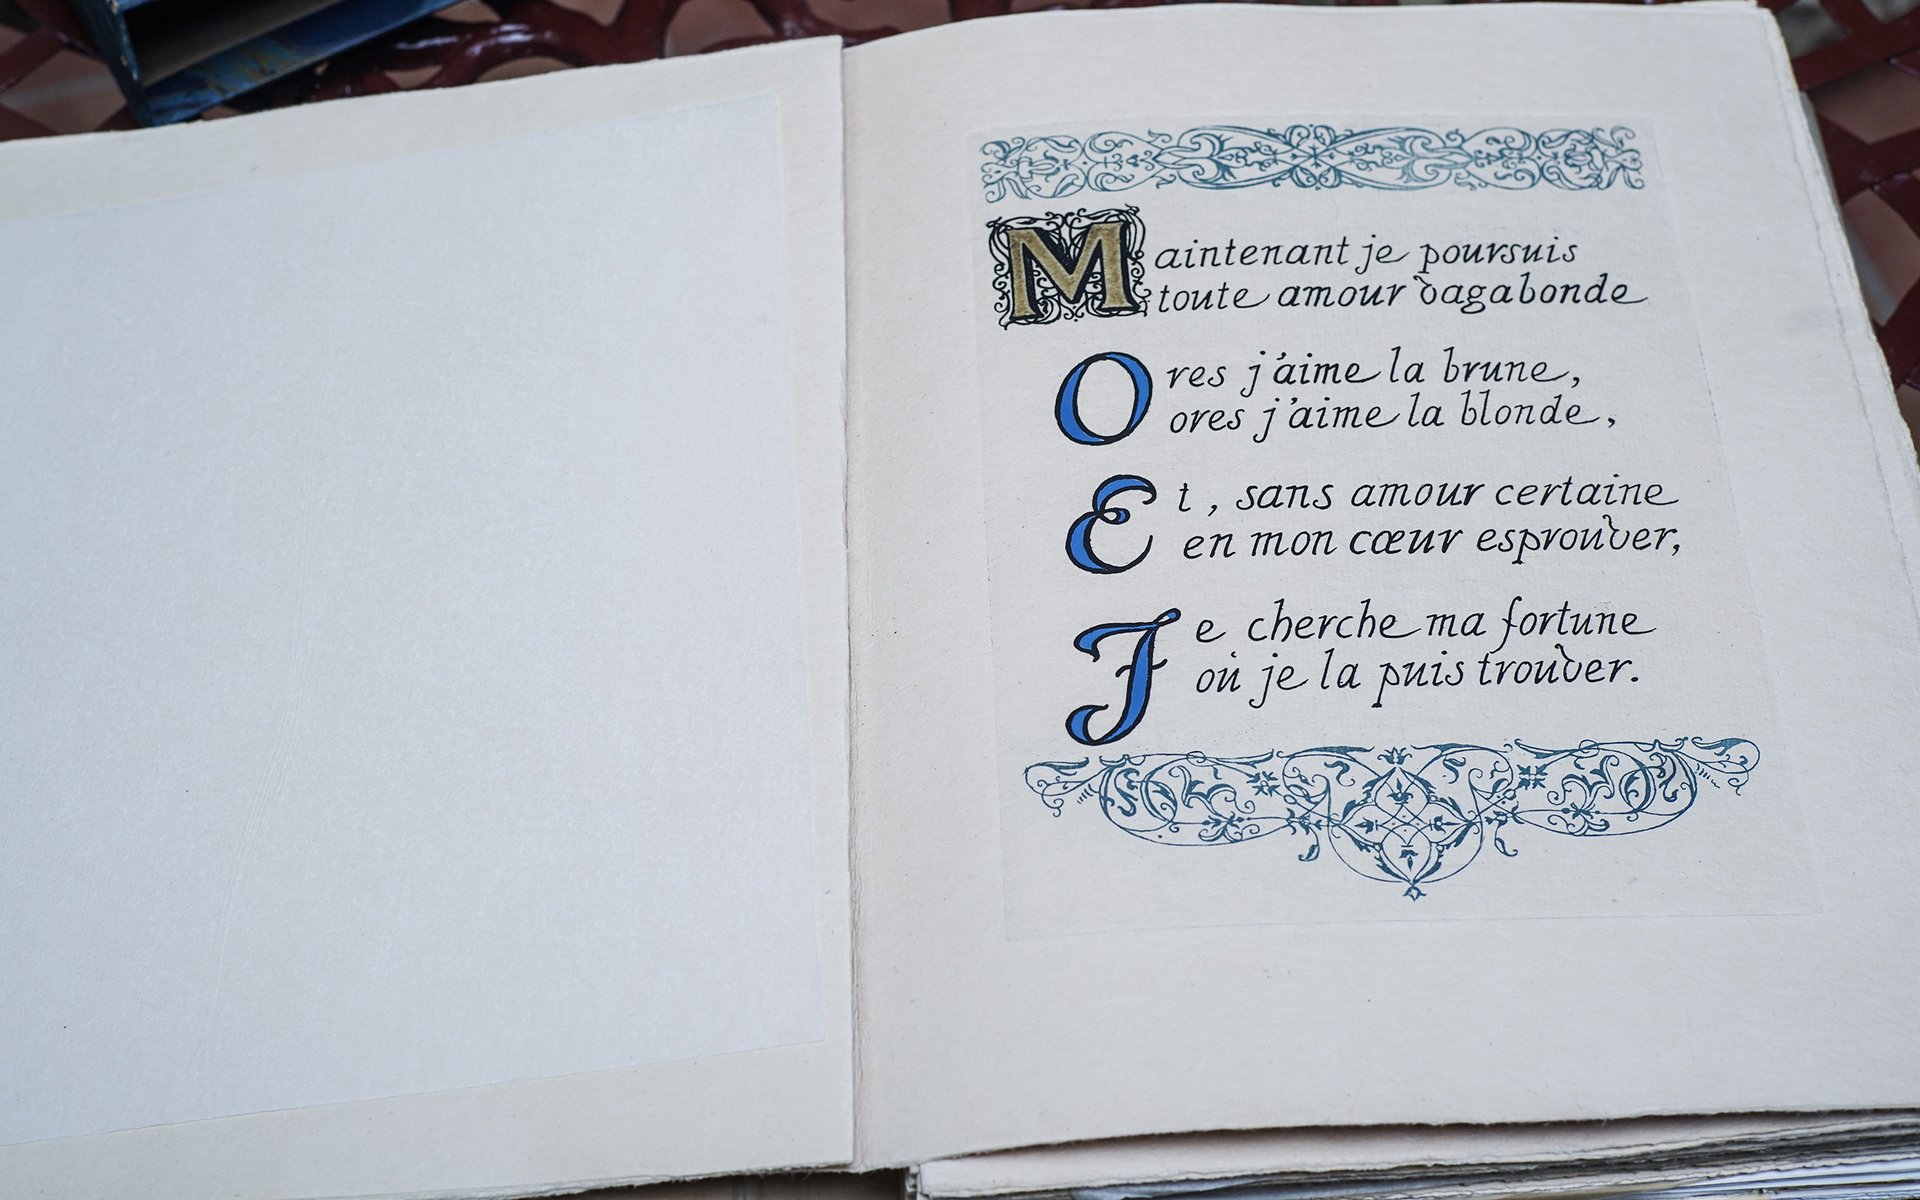 Maintenant je poursuis
toute amour vagabonde
Ores j'aime la brune,
ores j'aime la blonde,
Et, sans amour certaine
en mon cœur esprouver,
Je cherche ma fortune
où je la puis trouver.